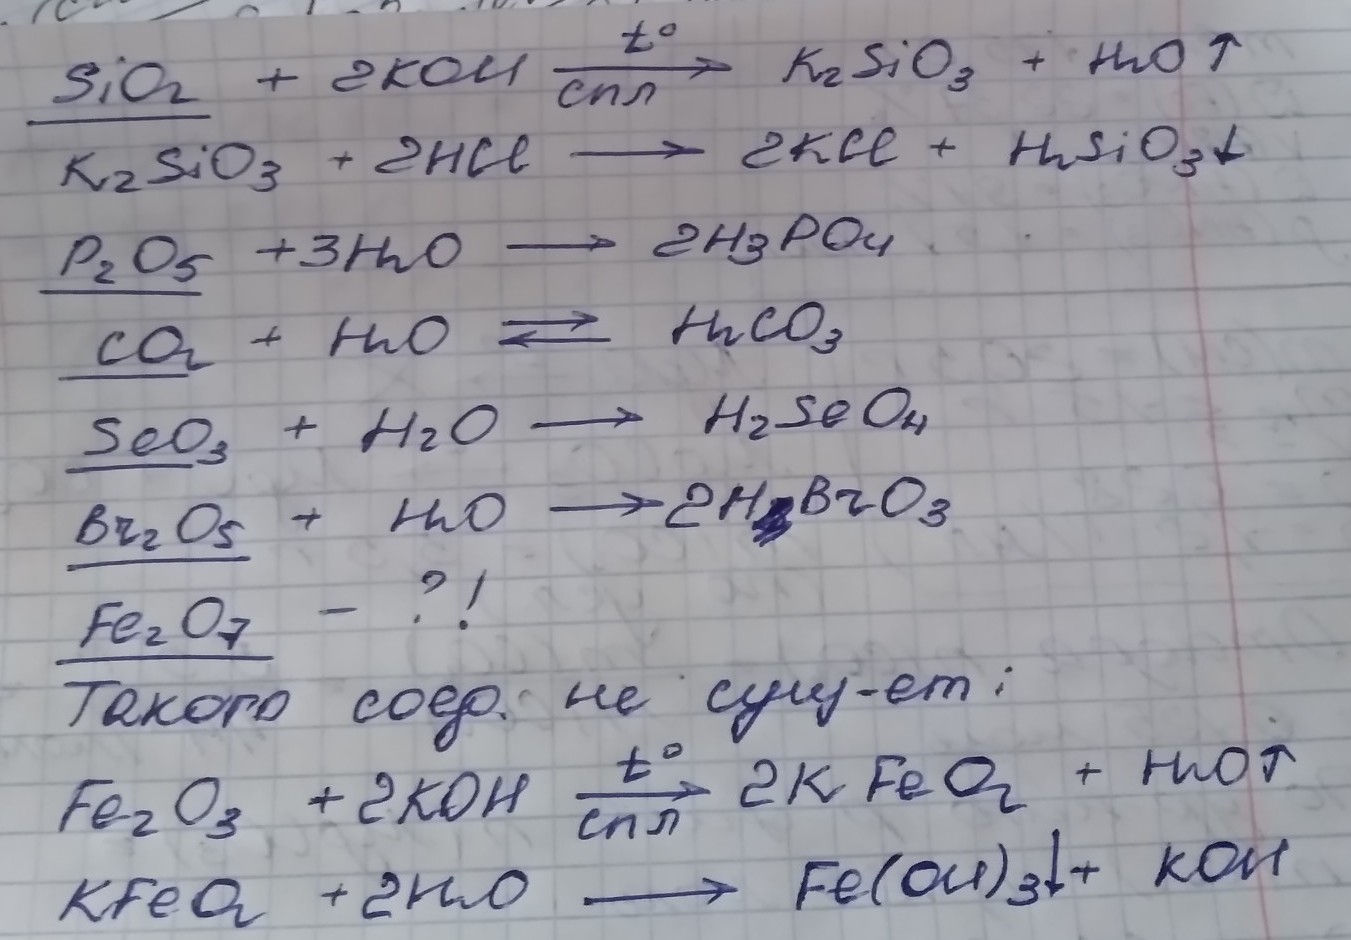 SiO₂ + 2KOH t° спл → K₂SiO₃ + H₂O↑
K₂SiO₃ + 2HCl → 2KCl + H₂SiO₃↓
P₂O₅ + 3H₂O → 2H₃PO₄
CO₂ + H₂O ⇄ H₂CO₃
SeO₃ + H₂O → H₂SeO₄
Br₂O₅ + H₂O → 2HBrO₃
Fe₂O₇ – ?!
Такого соед. не сущ-ет:
Fe₂O₃ + 2KOH t° спл → 2KFeO₂ + H₂O↑
KFeO₂ + 2H₂O → Fe(OH)₃↓ + KOH